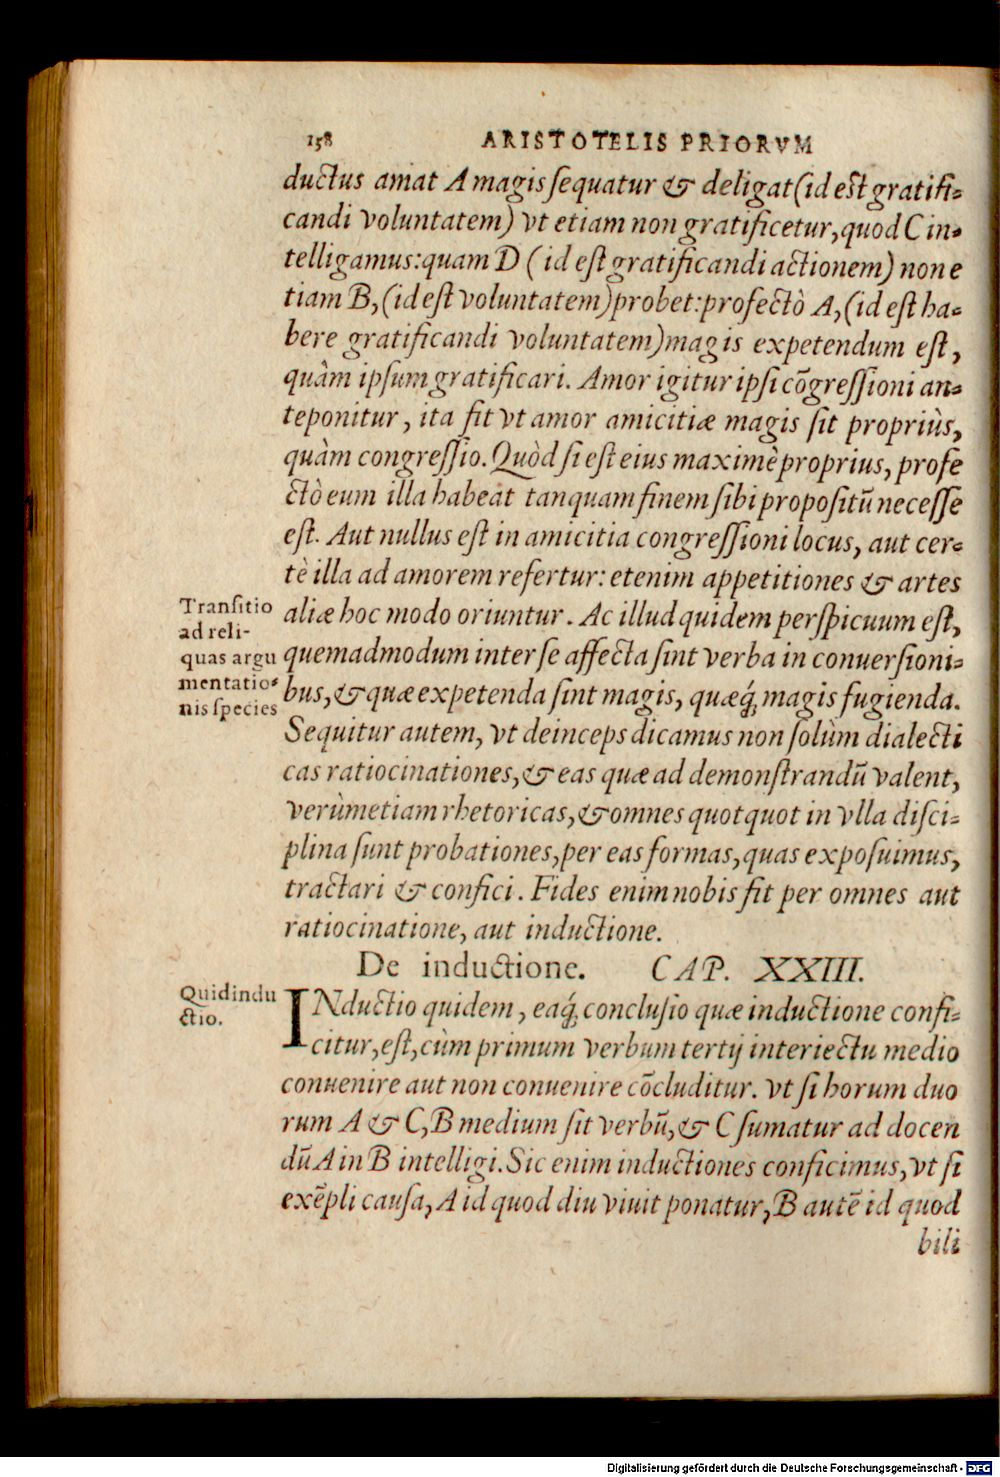 158 ARISTOTELIS PRIORVM
ductus amat A magis sequatur & deligat (id est gratifi-
candi voluntatem) vt etiam non gratificetur, quod C in-
telligamus: quam D (id est gratificandi actionem) non e
tiam B, (id est voluntatem) probet: profectò A, (id est ha-
bere gratificandi voluntatem) magis expetendum est,
quàm ipsum gratificari. Amor igitur ipsi cõgressioni an-
teponitur, ita fit vt amor amicitiæ magis sit propriùs,
quàm congressio. Quòd si est eius maximè proprius, profe
ctò eum illa habeat tanquam finem sibi propositũ necesse
est. Aut nullus est in amicitia congressioni locus, aut cer-
tè illa ad amorem refertur: etenim appetitiones & artes
aliæ hoc modo oriuntur. Ac illud quidem perspicuum est,
quemadmodum inter se affecta sint verba in conuersioni-
bus, & quæ expetenda sint magis, quæq́; magis fugienda.
Transitio
ad reli-
quas argu
mentatio-
nis species
Sequitur autem, vt deinceps dicamus non solùm dialecti
cas ratiocinationes, & eas quæ ad demonstrandũ valent,
verùmetiam rhetoricas, & omnes quotquot in vlla disci-
plina sunt probationes, per eas formas, quas exposuimus,
tractari & confici. Fides enim nobis fit per omnes aut
ratiocinatione, aut inductione.
De inductione. CAP. XXIII.
Quid indu
ctio.
INductio quidem, eaq́; conclusio quæ inductione confi-
citur, est, cùm primum verbum tertij interiectu medio
conuenire aut non conuenire cõcluditur. vt si horum duo
rum A & C, B medium sit verbũ, & C sumatur ad docen
dũ A in B intelligi. Sic enim inductiones conficimus, vt si
exẽpli causa, A id quod diu viuit ponatur, B autẽ id quod
bili
Digitalisierung gefördert durch die Deutsche Forschungsgemeinschaft - DFG